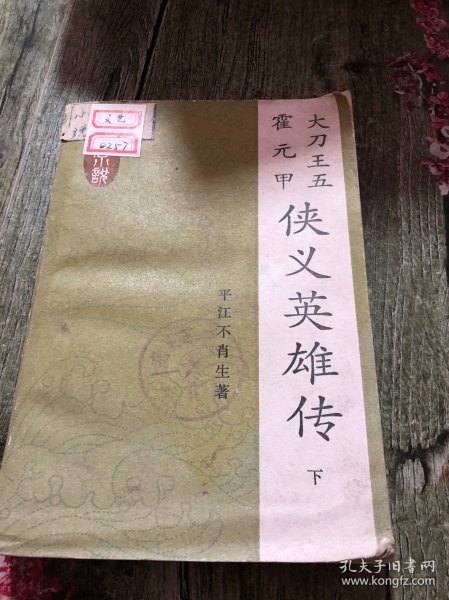 大刀王五
霍元甲
侠义英雄传
下
平江不肖生著
文艺
0257
小说
孔夫子旧书网
www.kongfz.com